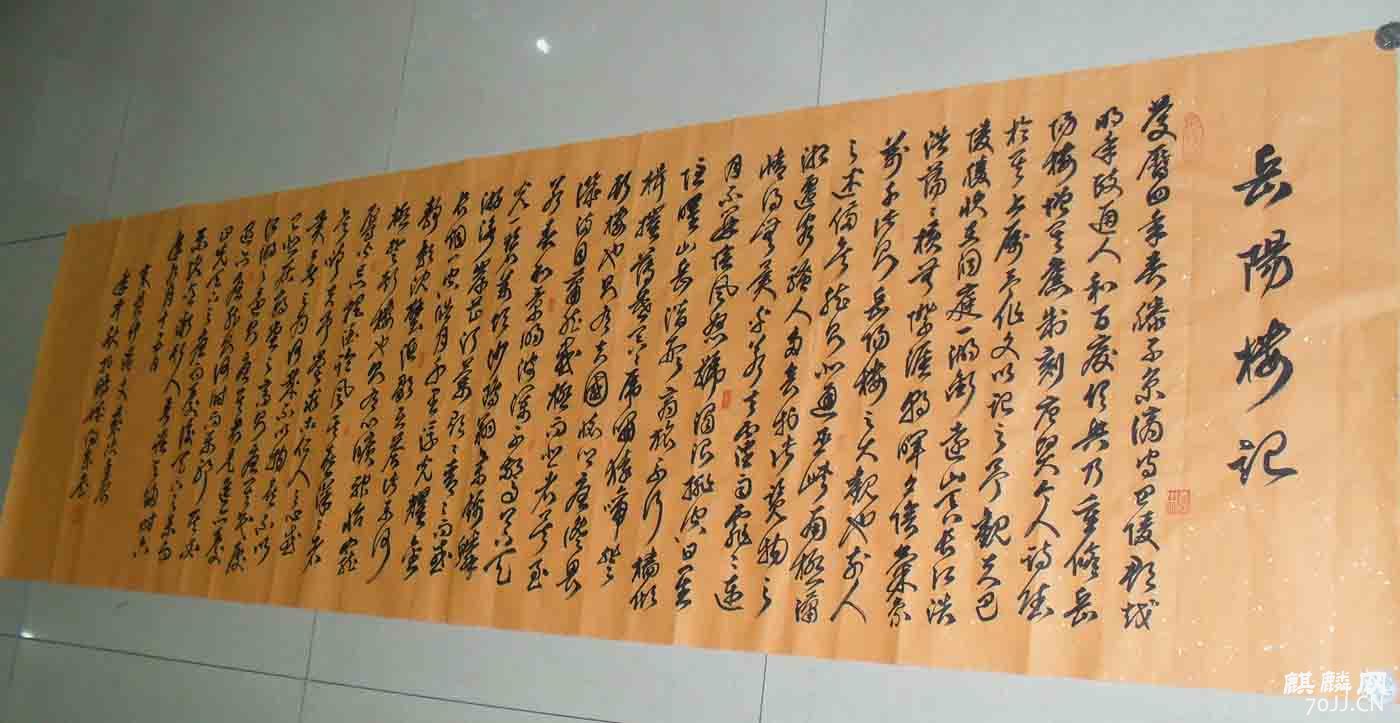 岳陽樓記
慶曆四年春滕子京謫守巴陵郡越
明年政通人和百廢俱興乃重修岳
陽樓增其舊制刻唐賢今人詩賦
於其上屬予作文以記之予觀夫巴
陵勝狀在洞庭一湖銜遠山吞長江浩
浩蕩〻橫無際涯朝暉夕陰氣象
萬千此則岳陽樓之大觀也前人
之述備矣然則北通巫峽南極瀟
湘遷客騷人多會於此覽物之
情得無異乎若夫霪雨霏〻連
月不開陰風怒號濁浪排空日星
隱曜山岳潛形商旅不行檣傾
楫摧薄暮冥〻虎嘯猿啼登
斯樓也則有去國懷鄉憂讒畏
譏滿目蕭然感極而悲者矣至
若春和景明波瀾不驚上下天
光一碧萬頃沙鷗翔集錦鱗
游泳岸芷汀蘭郁〻青〻而或
長烟一空皓月千里浮光耀金
靜影沈璧漁歌互答此樂何
極登斯樓也則有心曠神怡寵
辱皆忘把酒臨風其喜洋〻者
矣嗟夫予嘗求古仁人之心或
異二者之為何哉不以物喜不以
己悲居廟堂之高則憂其民處
江湖之遠則憂其君是進亦憂
退亦憂然則何時而樂耶其必
曰先天下之憂而憂後天下之樂而
樂乎噫微斯人吾誰與歸時六
年九月十五日
麒麟网
70JJ.CN